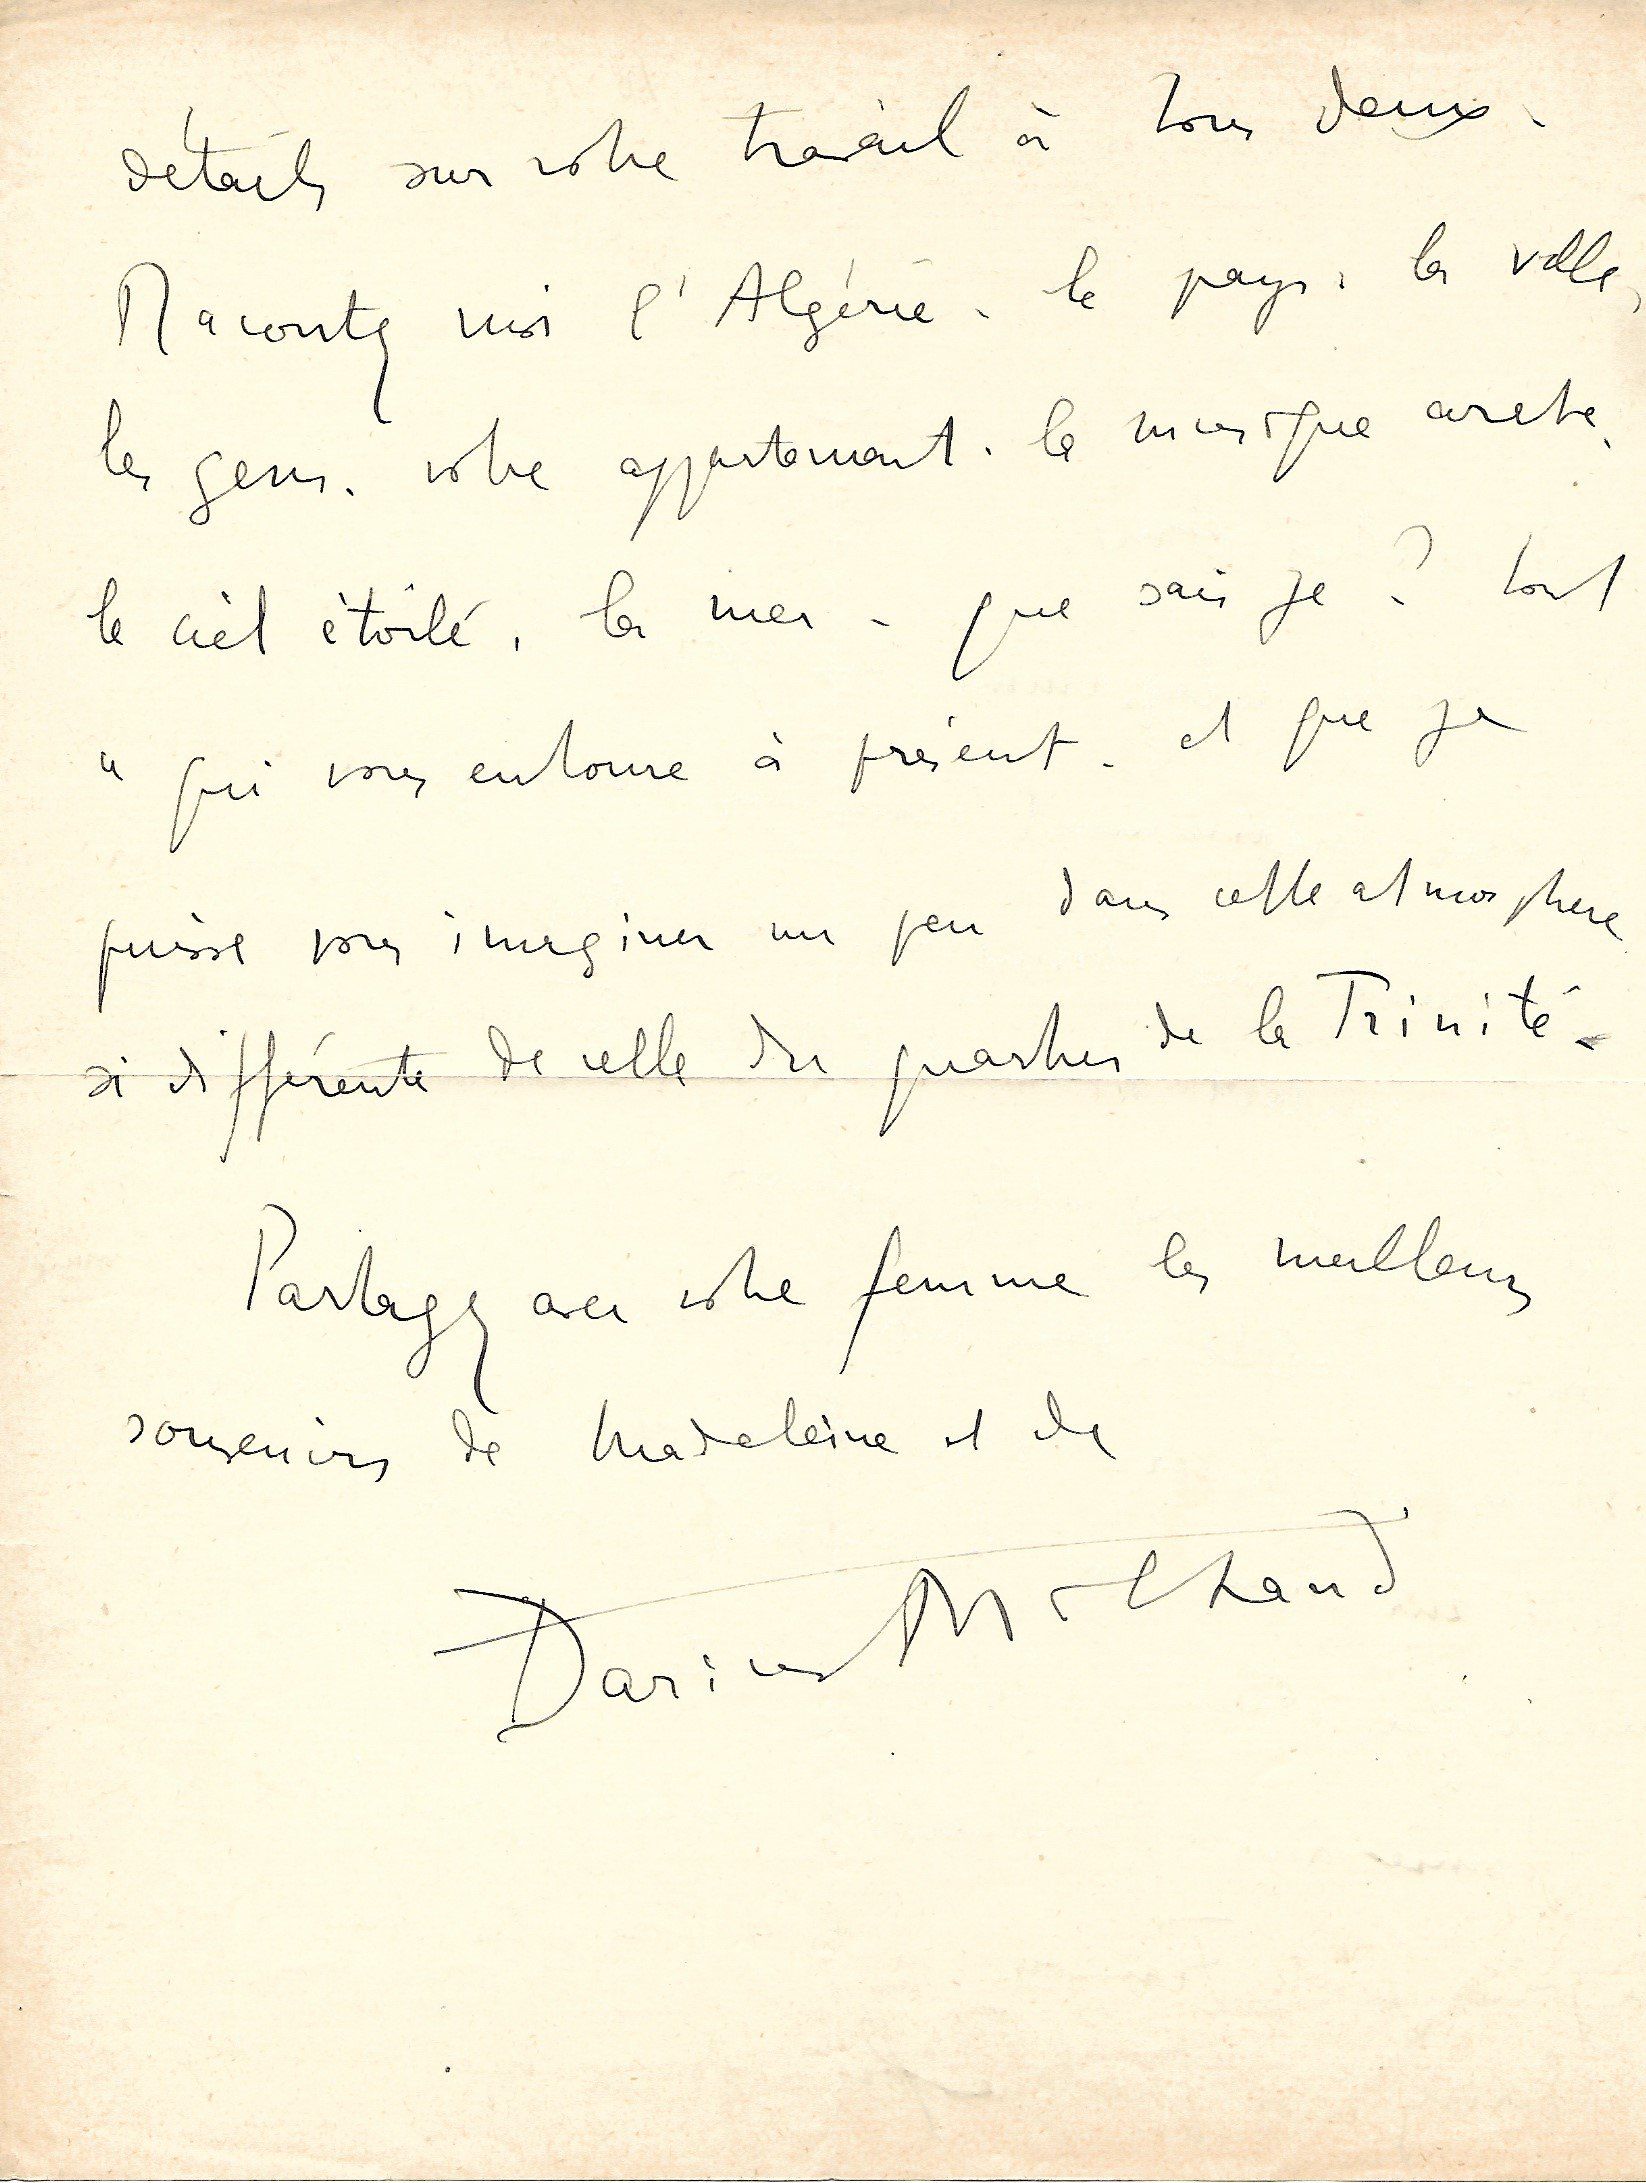 détails sur votre travail à tous deux.
Racontez moi l'Algérie. le pays, la ville,
les gens. votre appartement. la musique arabe,
le ciel étoilé, la mer. que sais je ? tout
ce qui vous entoure à présent. et que je
puisse vous imaginer un peu dans cette atmosphere
si différente de celle du quartier de la Trinité.
Partagez avec votre femme les meilleurs
souvenirs de Madeleine et de
Darius Milhaud